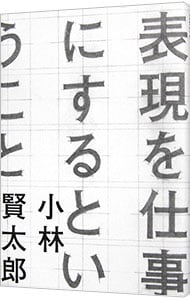 表現を仕事
にするとい
うこと
小林
賢太郎